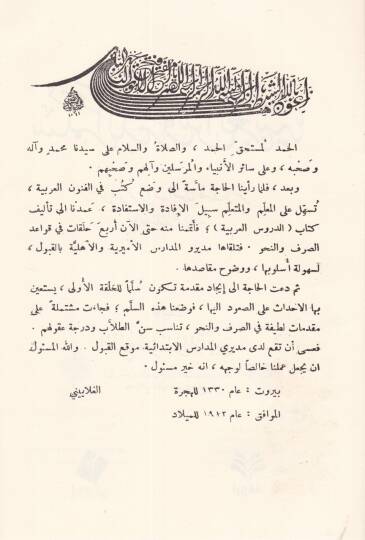 الحمد لمستحق الحمد ، والصلاة والسلام على سيدنا محمد وآله
وصحبه ، وعلى سائر الأنبياء والمرسلين وآلهم وصحبهم .
وبعد ، فلما رأينا الحاجة ماسة الى وضع كُتُب في الفنون العربية ،
تُسهّل على المعلِّم والمتعلِّم سبيل الإفادة والاستفادة ، عمدنا الى تأليف
كتاب ( الدروس العربية ) ؛ فأتممنا منه حتى الآن أربع حلقات في قواعد
الصرف والنحو . فتلقاها مديرو المدارس الأميرية والأهلية بالقبول ،
لسهولة أسلوبها ، ووضوح مقاصدها .
ثم دعت الحاجة الى إيجاد مقدمة تكون سُلَّماً للحلقة الأولى ، يستعين
بها الاحداث على الصعود اليها ، فوضعنا هذه السلَّم ؛ فجاءت مشتملة على
مقدمات لطيفة في الصرف والنحو ، تناسب سنَّ الطلاب ودرجة عقولهم .
فعسى أن تقع لدى مديري المدارس الابتدائية موقع القبول . والله المسئول
ان يجعل عملنا خالصاً لوجهه ، انه خير مسئول .
بيروت : عام ١٣٣٠ للهجرة الغلاييني
الموافق : عام ١٩١٢ للميلاد